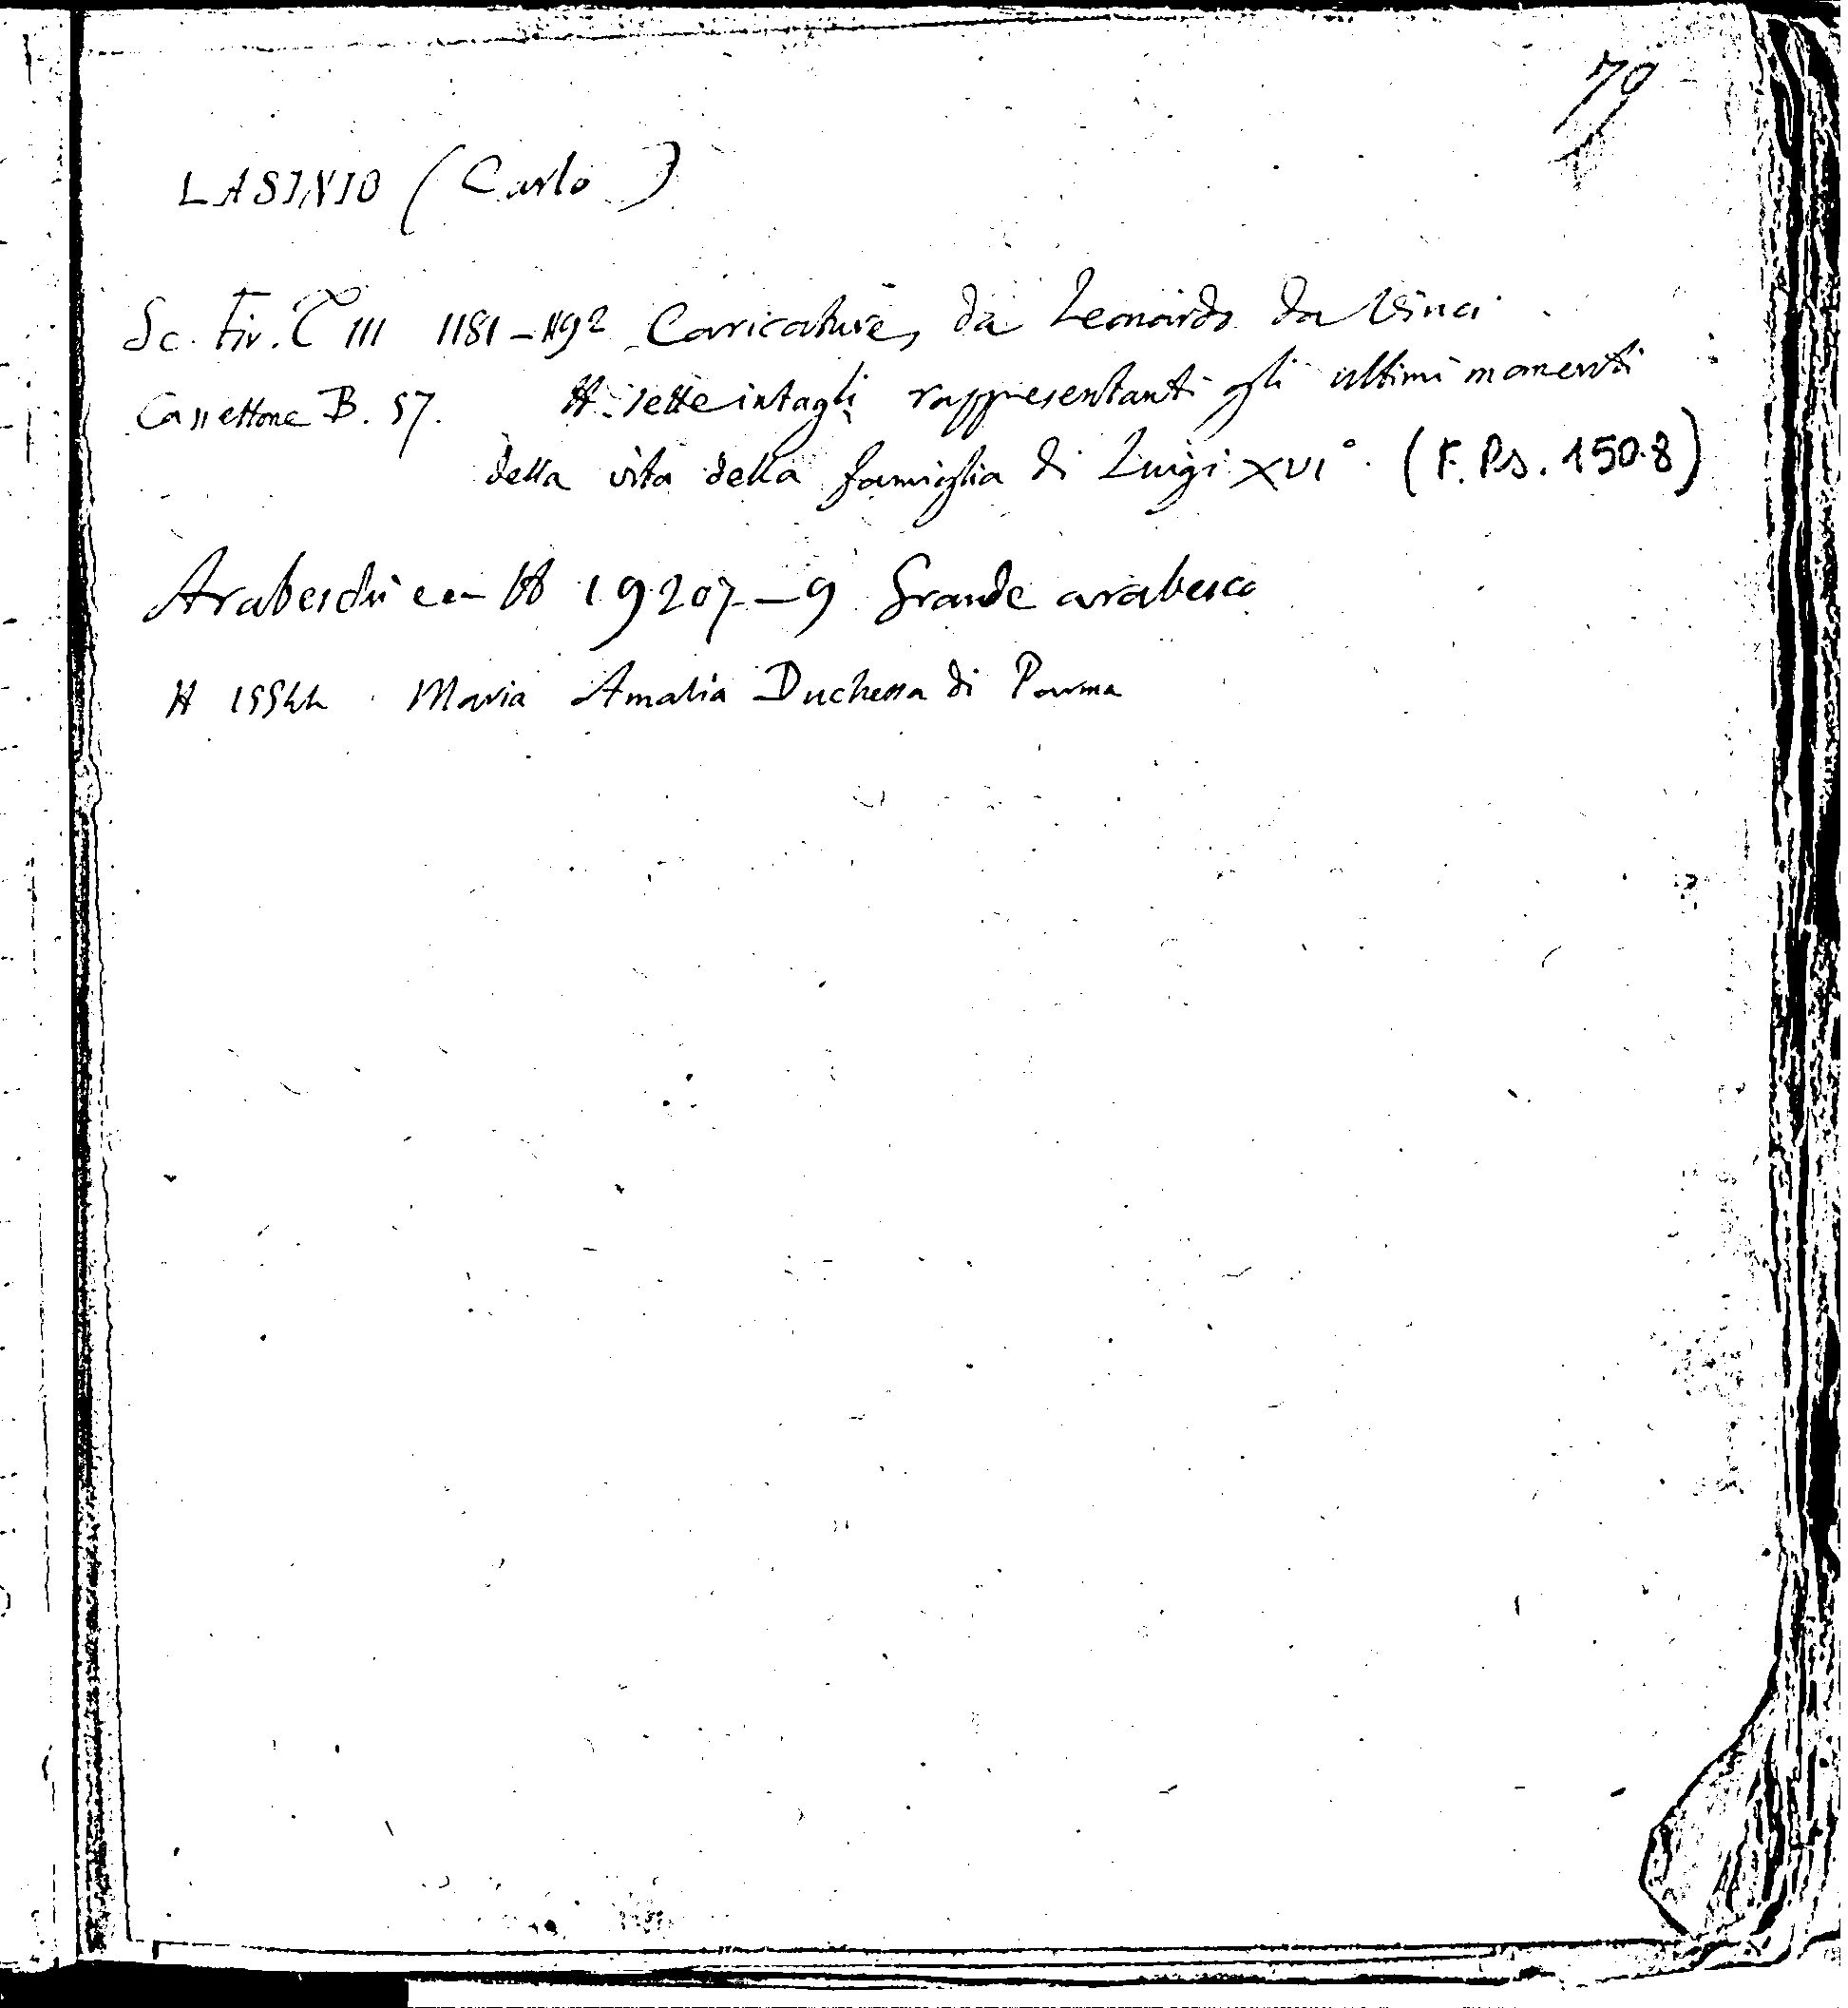 70
LASINIO (Carlo)
Sc. Fir. T III 1181-1192 Caricature, da Leonardo da Vinci
Cassettone B. 57. N. sette intagli rappresentanti gli ultimi momenti
della vita della famiglia di Luigi XVI°. (F. Ps. 150.8)
Arabeschi ecc N 19207-9 Grande arabesco
N 15544 Maria Amalia Duchessa di Parma